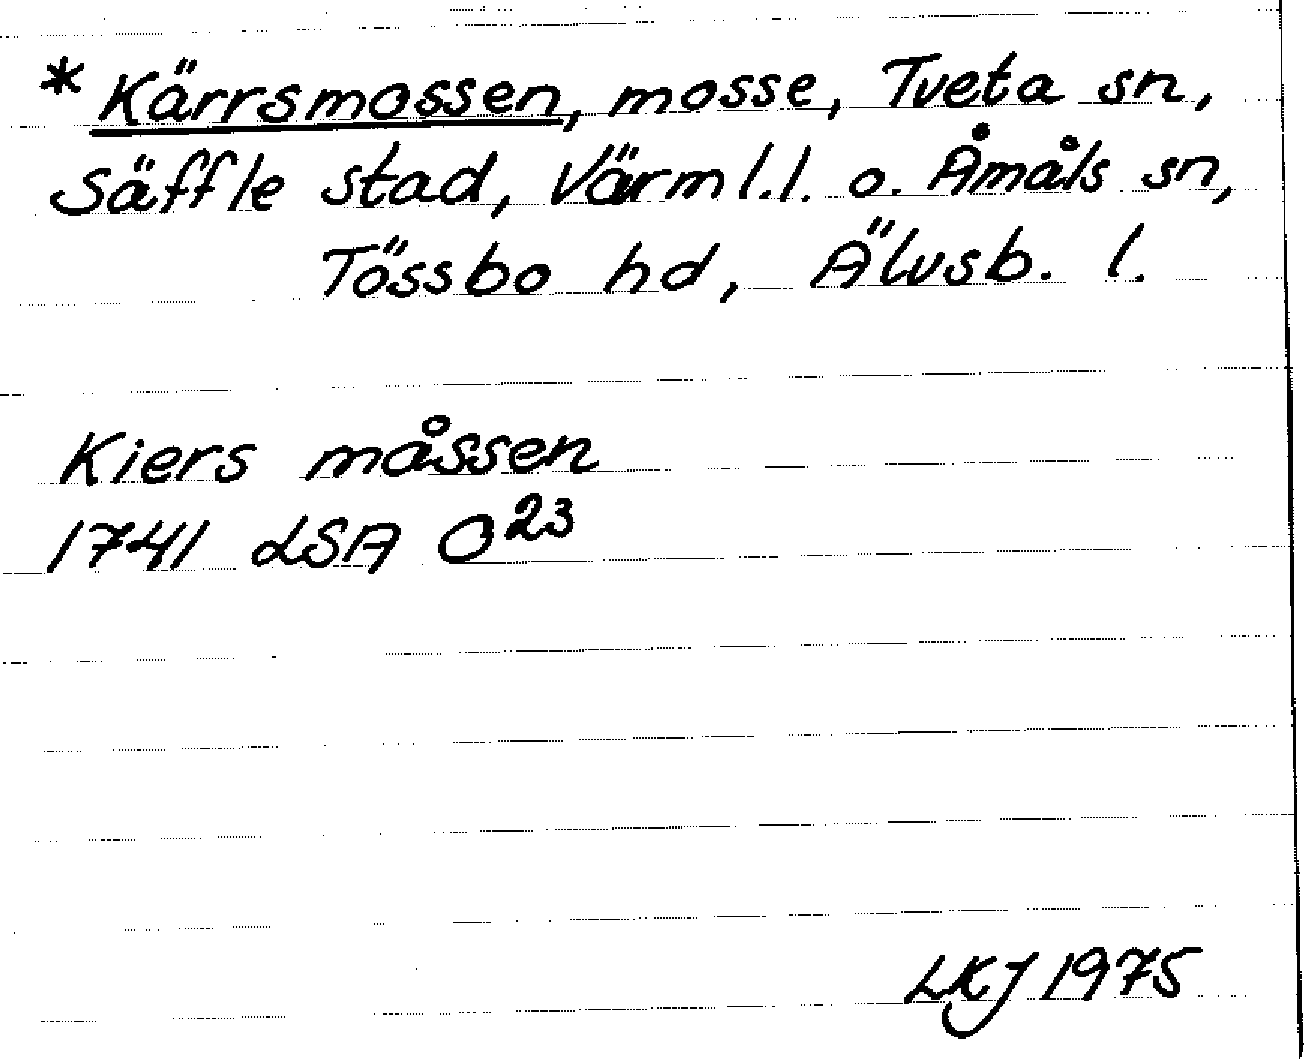 * Kärrsmossen, mosse, Tveta sn,
Säffle stad, Värml.l. o. Åmåls sn,
Tössbo hd, Älvsb. l.
Kiers måssen
1741 LSA O23
LKJ 1975